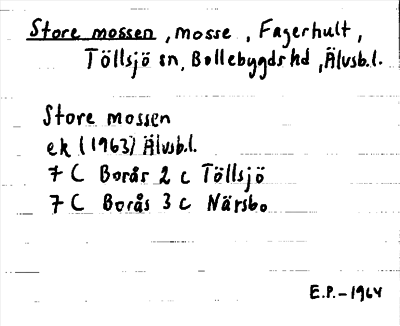 Store mossen, mosse, Fagerhult,
Töllsjö sn, Bollebygds hd, Älvsb.l.
Store mossen
ek (1963) Älvsb.l.
7 C Borås 2 c Töllsjö
7 C Borås 3 c Närsbo
E.P.-1964